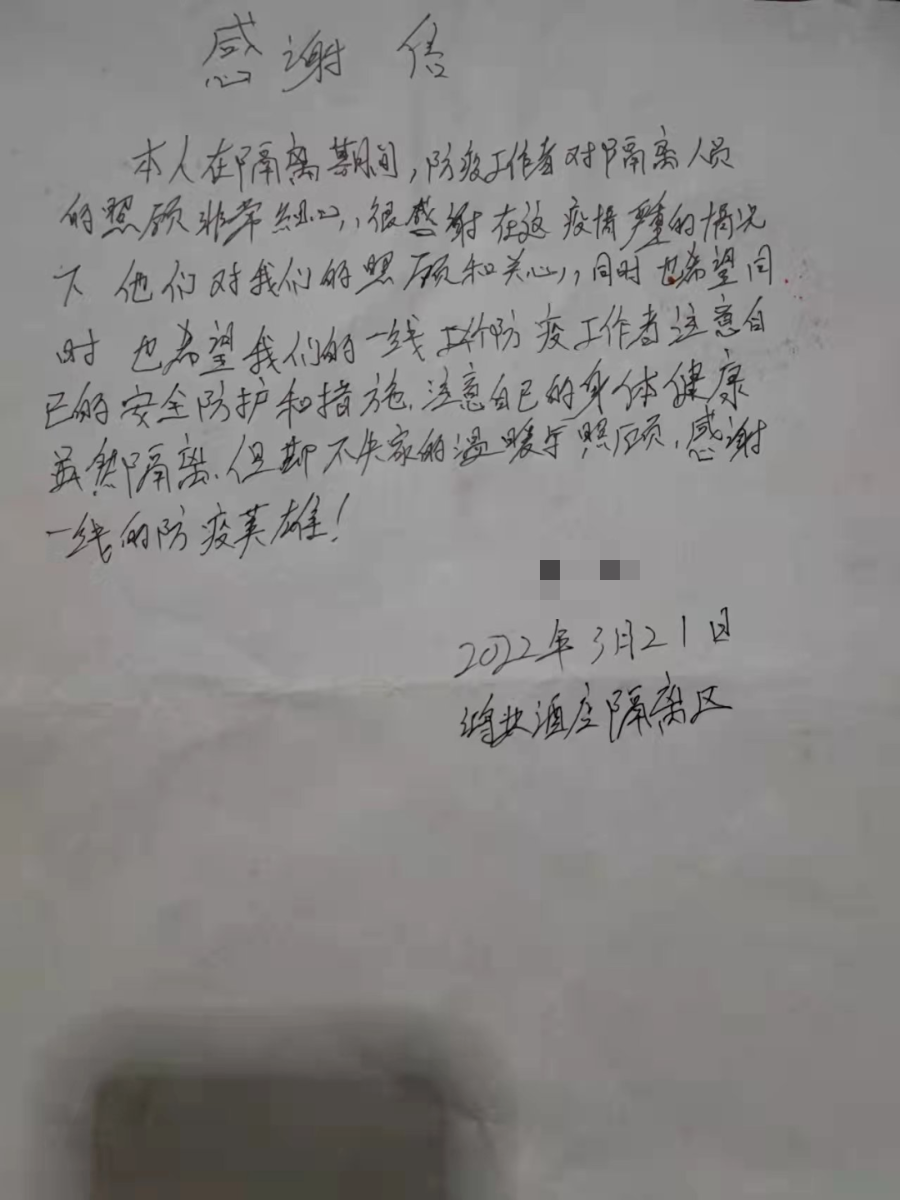 感谢信
本人在隔离期间,防疫工作者对隔离人员
的照顾非常细心,很感谢在这疫情严重的情况
下他们对我们的照顾和关心,同时也希望同
时也希望我们的一线工作防疫工作者注意自
己的安全防护和措施.注意自己的身体健康
虽然隔离.但却不失家的温暖与照顾.感谢
一线的防疫英雄!
2022年3月21日
酒店隔离区